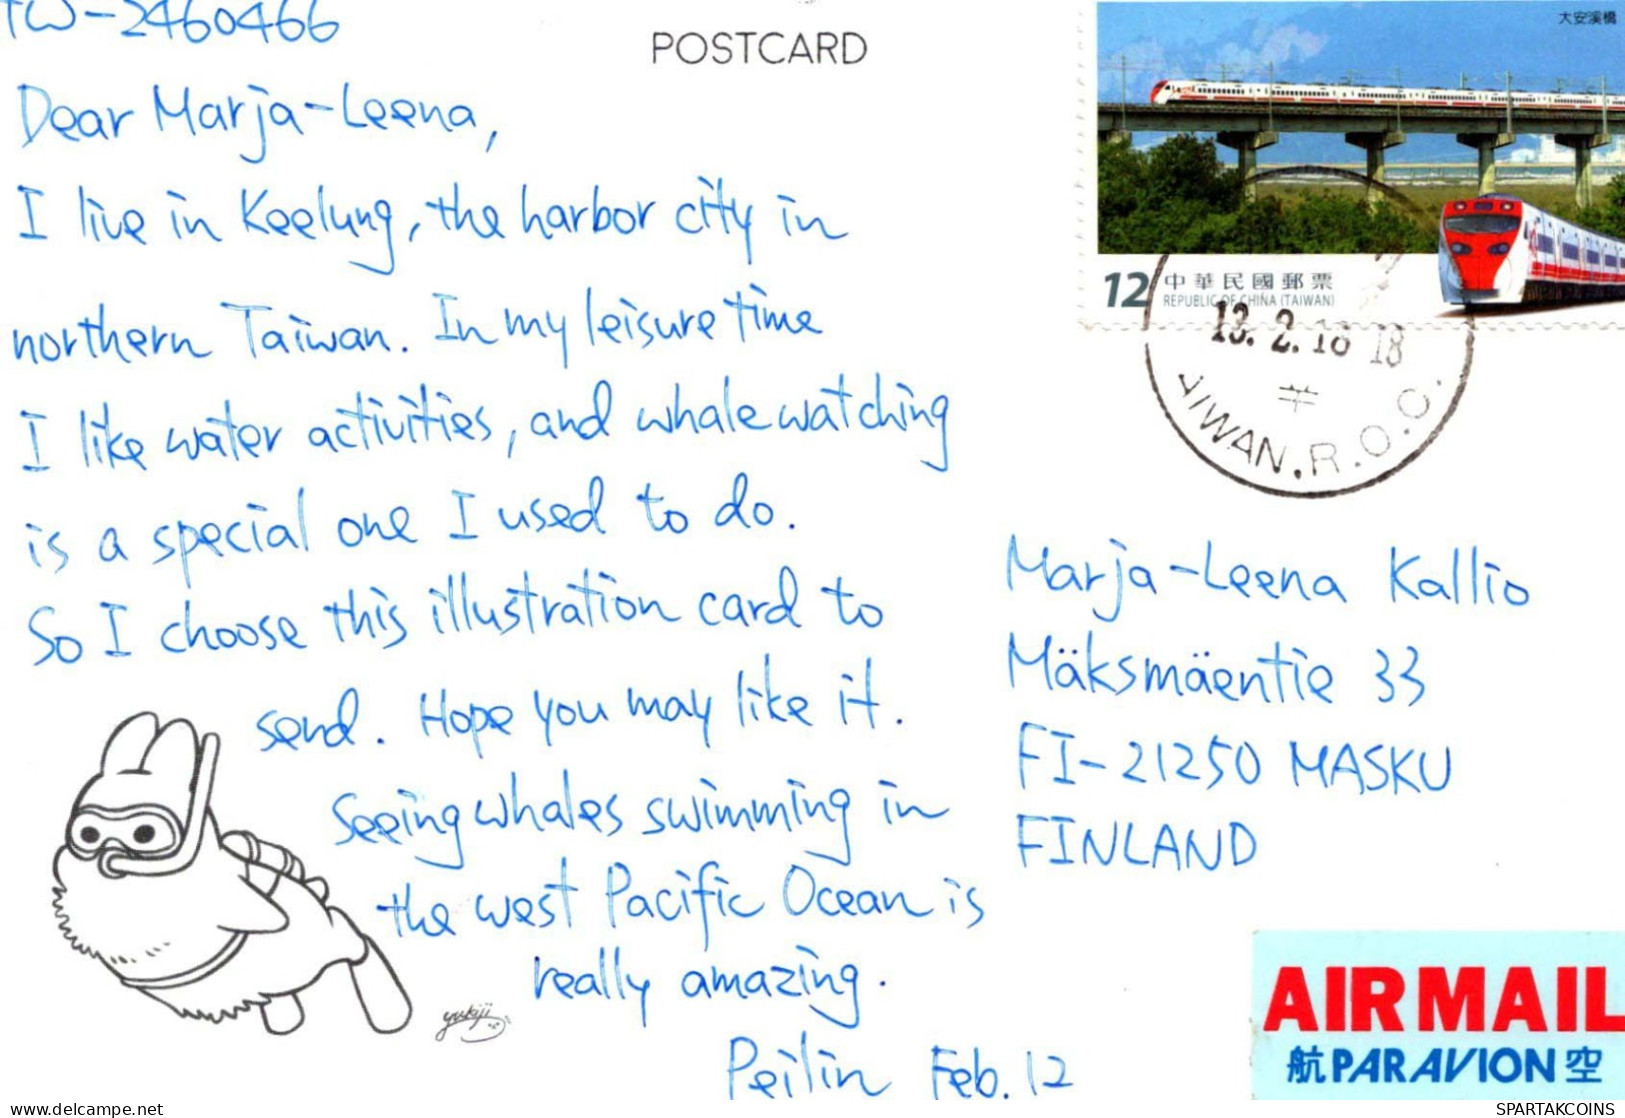 TW-2460466
POSTCARD
Dear Marja-Leena,
I live in Keelung, the harbor city in
northern Taiwan. In my leisure time
I like water activities, and whale watching
is a special one I used to do.
So I choose this illustration card to
send. Hope you may like it.
Seeing whales swimming in
the west Pacific Ocean is
really amazing.
Peilin Feb. 12
yukiji
大安溪橋
12 中華民國郵票
REPUBLIC OF CHINA (TAIWAN)
13. 2. 18 18
AIWAN. R. O. C.
Marja-Leena Kallio
Mäksmäentie 33
FI-21250 MASKU
FINLAND
AIR MAIL
航 PAR AVION 空
www.delcampe.net
SPARTAKCOINS